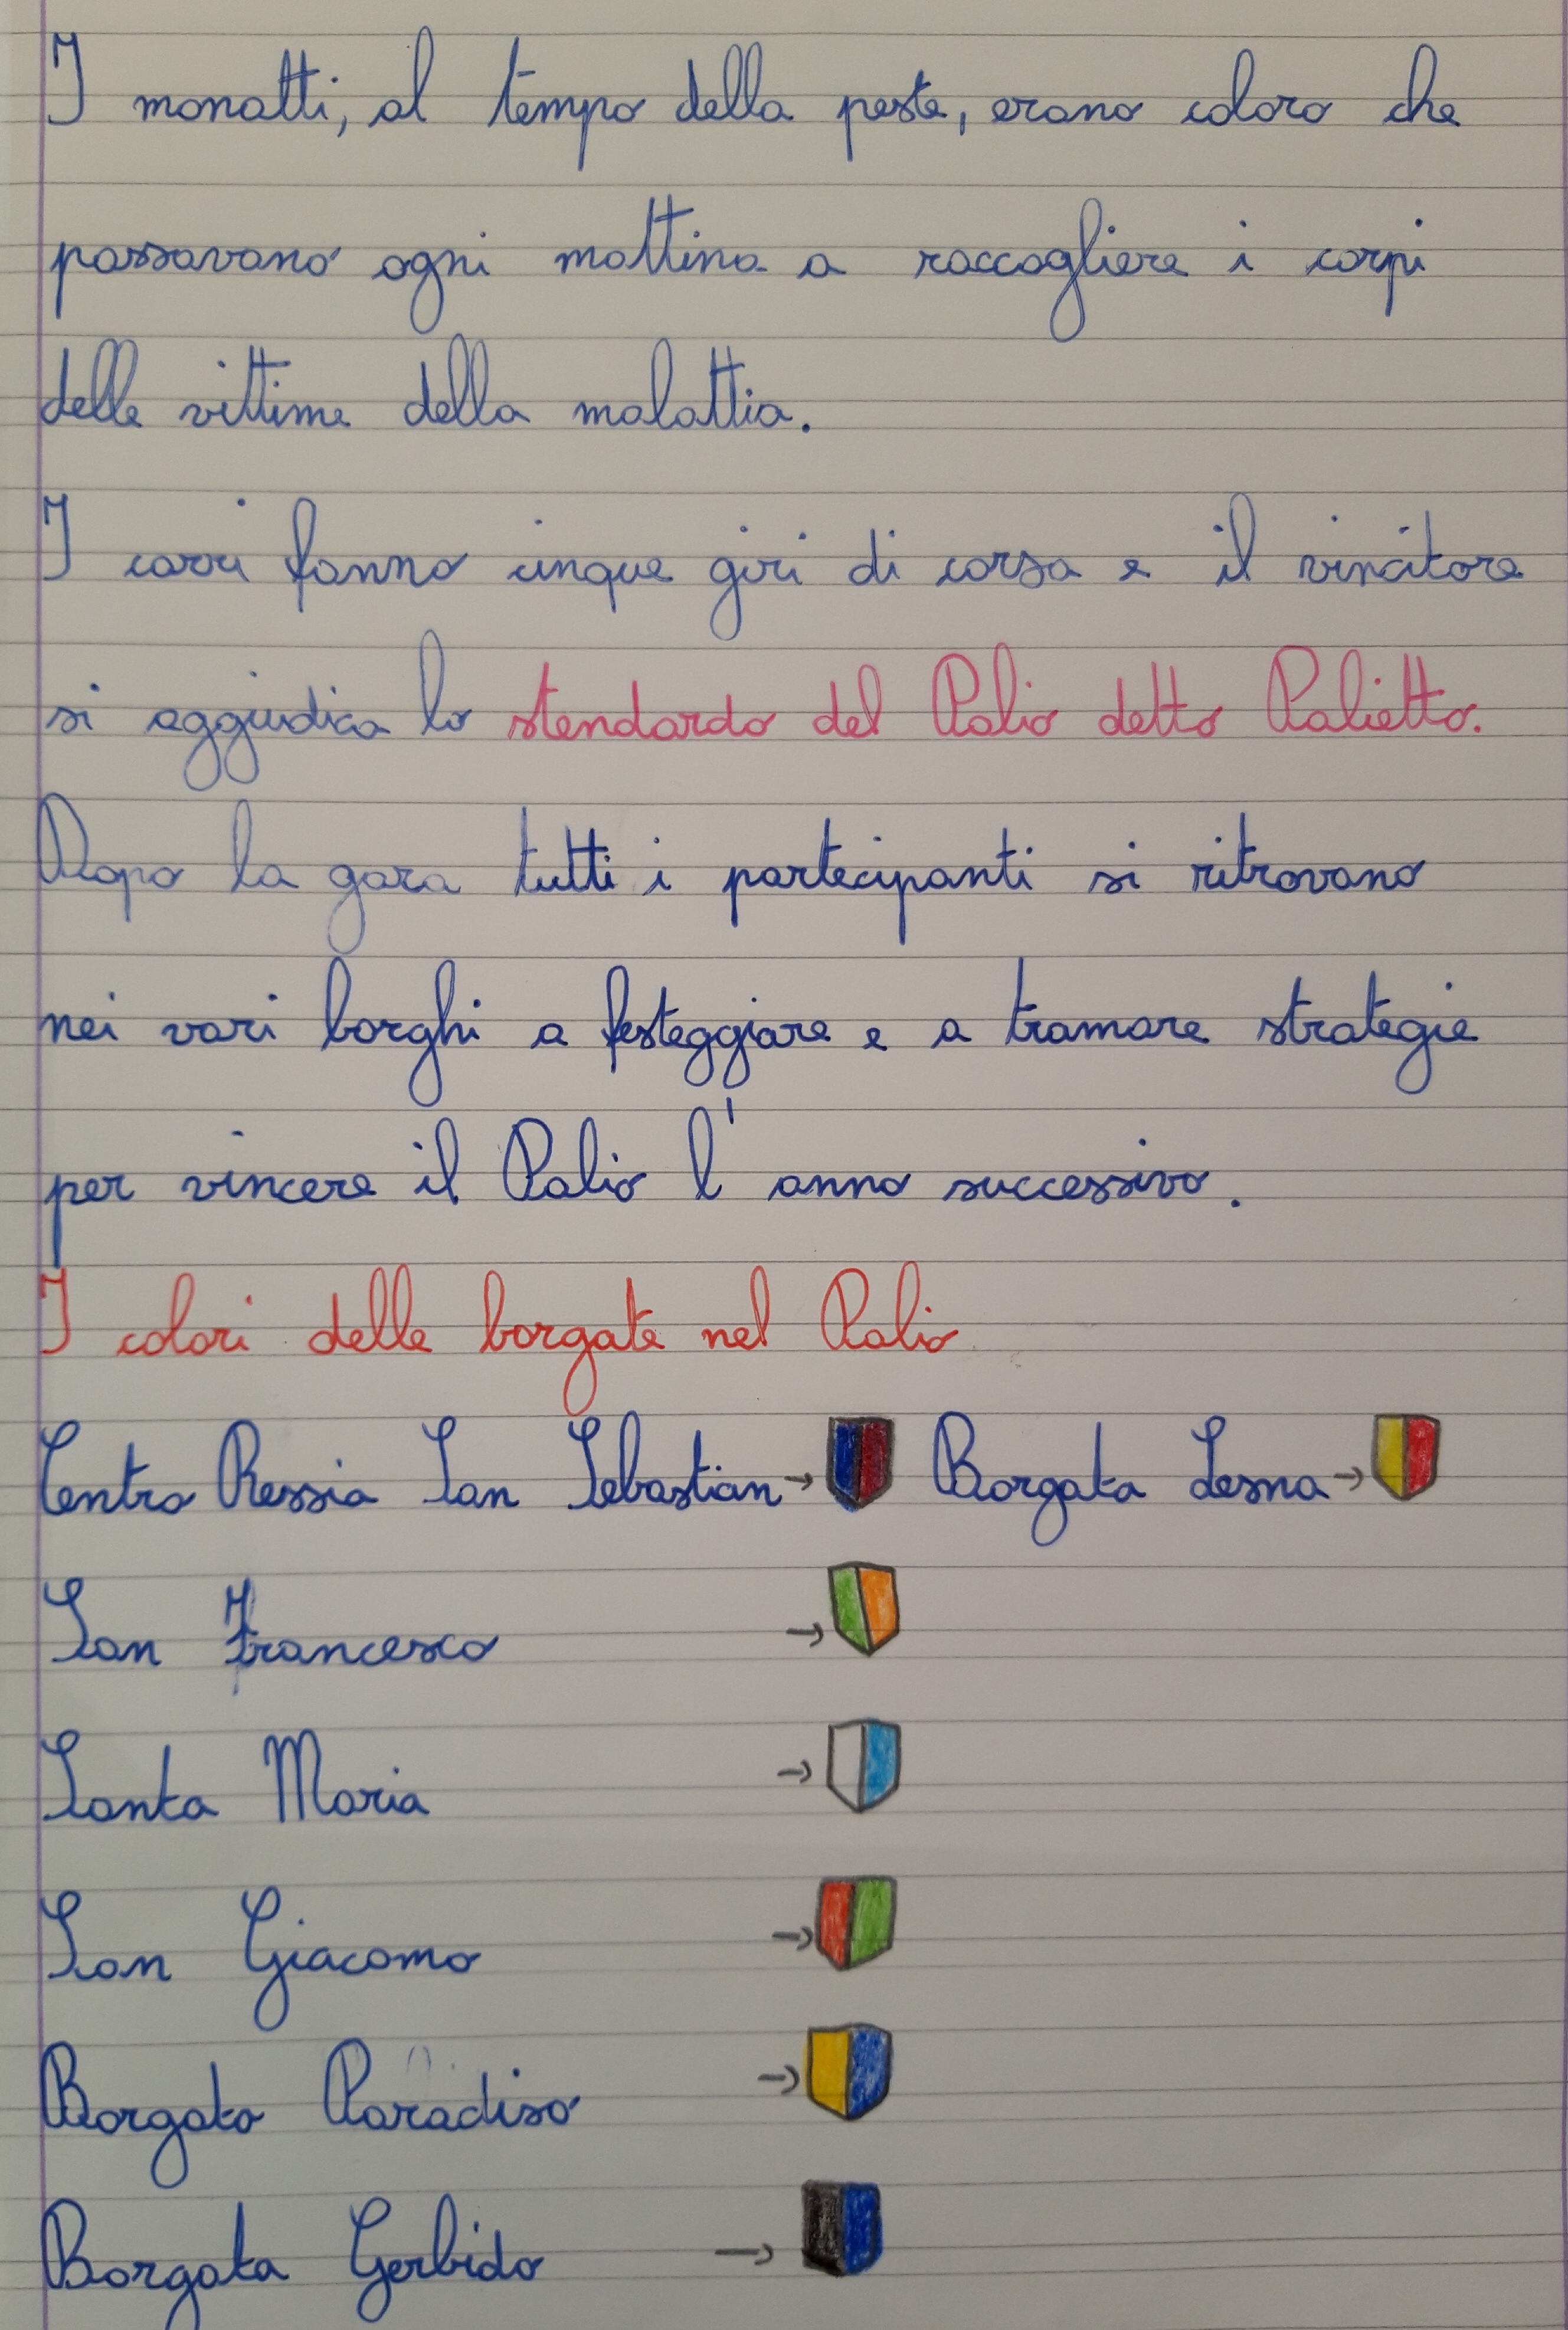 I monatti, al tempo della peste, erano coloro che
passavano ogni mattina a raccogliere i corpi
delle vittime della malattia.
I carri fanno cinque giri di corsa e il vincitore
si aggiudica lo stendardo del Palio detto Palietto.
Dopo la gara tutti i partecipanti si ritrovano
nei vari borghi a festeggiare e a tramare strategie
per vincere il Palio l'anno successivo.
I colori delle borgate nel Palio
Centro Ressia San Sebastian → Borgata Lesna →
San Francesco →
Santa Maria →
San Giacomo →
Borgata Paradiso →
Borgata Gerbido →